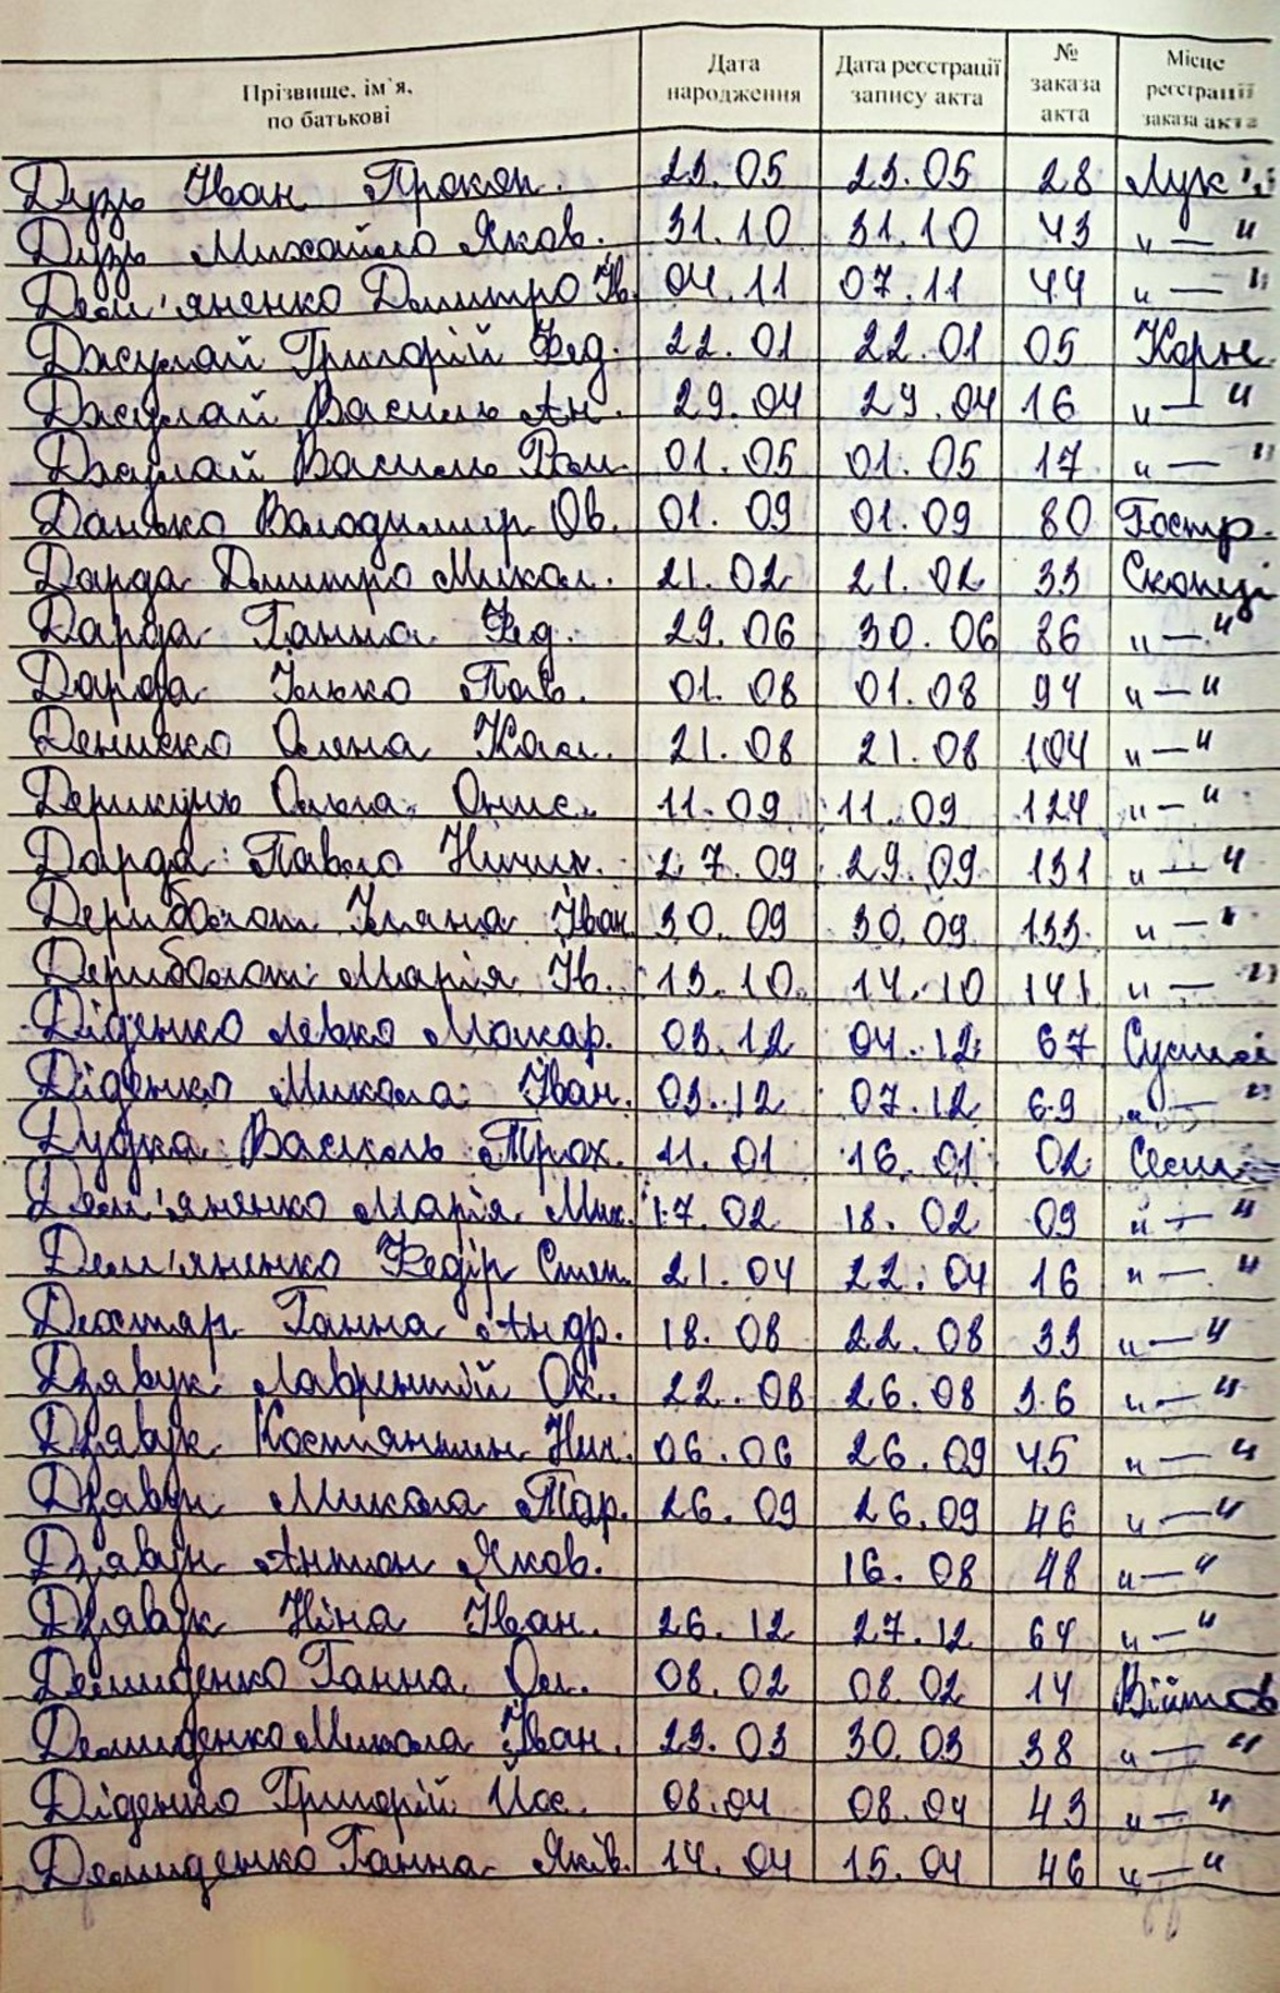 Прізвище, ім'я, по батькові | Дата народження | Дата реєстрації запису акта | № заказа акта | Місце реєстрації заказа акта
Дузь Іван Прокоп. 23.05 23.05 28 Лук
Дузь Михайло Яков. 31.10 31.10 43 "—"
Дем'яненко Дмитро Ів. 04.11 07.11 44 "—"
Джулай Григорій Фед. 22.01 22.01 05 Корж
Джулай Василь Ан. 29.04 29.04 16 "—"
Джулай Василь Ром. 01.05 01.05 17 "—"
Данько Володимир Ов. 01.09 01.09 80 Гостр.
Дарда Дмитро Микол. 21.02 21.02 33 Скопці
Дарда Ганна Фед. 29.06 30.06 86 "—"
Дарда Ілько Пав. 01.08 01.08 94 "—"
Дениско Олена Кал. 21.08 21.08 104 "—"
Дерикунь Ольга Онис. 11.09 11.09 124 "—"
Дарда Павло Ничип. 27.09 29.09 131 "—"
Дериболот Уляна Іван 30.09 30.09 133 "—"
Дериболот Марія Ів. 13.10 14.10 141 "—"
Діденко Левко Макар. 03.12 04.12 67
Діденко Микола Іван. 03.12 07.12 69 "—"
Дудка Василь Трох. 11.01 16.01 02
Дем'яненко Марія Мих. 17.02 18.02 09 "—"
Дем'яненко Федір Степ. 21.04 22.04 16 "—"
Дехтяр Ганна Андр. 18.08 22.08 33 "—"
Дзявук Лаврентій Ол. 22.08 26.08 36 "—"
Дзявук Костянтин Нич. 06.06 26.09 45 "—"
Дзявук Микола Тар. 26.09 26.09 46 "—"
Дзявук Антон Яков. 16.08 48 "—"
Дзявук Ніна Іван. 26.12 27.12 64 "—"
Демиденко Ганна Ол. 08.02 08.02 14 Війтов
Демиденко Микола Іван. 23.03 30.03 38 "—"
Діденко Григорій Йос. 08.04 08.04 43 "—"
Демиденко Ганна Яків. 14.04 15.04 46 "—"